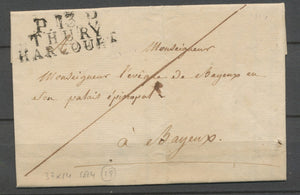 P.13.P
THURY
HARCOURT
Monseigneur
Monseigneur l'evêque de Bayeux en
son palais épiscopal
à Bayeux